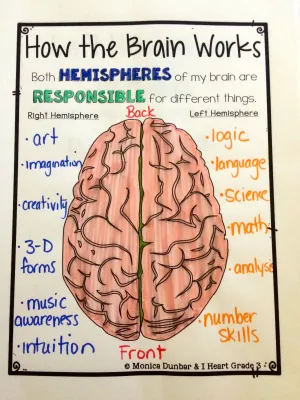 How the Brain Works
Both HEMISPHERES of my brain are
RESPONSIBLE for different things.
Right Hemisphere
Back
Left Hemisphere
• art
• imagination
• creativity
• 3-D
forms
• music
awareness
• intuition
• logic
• language
• Science
• math
• analysis
• number
skills
Front
© Monica Dunbar & I Heart Grade 3